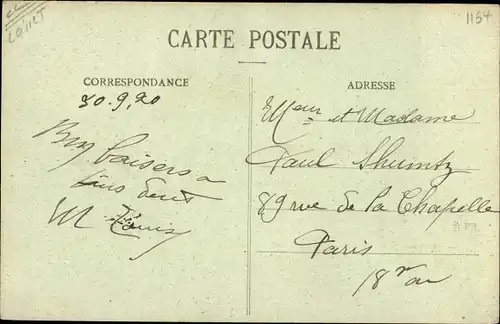 LOIRET
1154
CARTE POSTALE
CORRESPONDANCE
30.9.20
Bons baisers a
tous deux
M Louis
ADRESSE
Meur et Madame
Paul Shumtz
89 rue de la Chapelle
Paris
18r